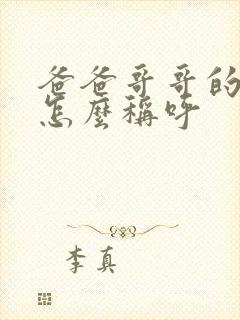 爸爸哥哥的
怎麼稱呼
李真